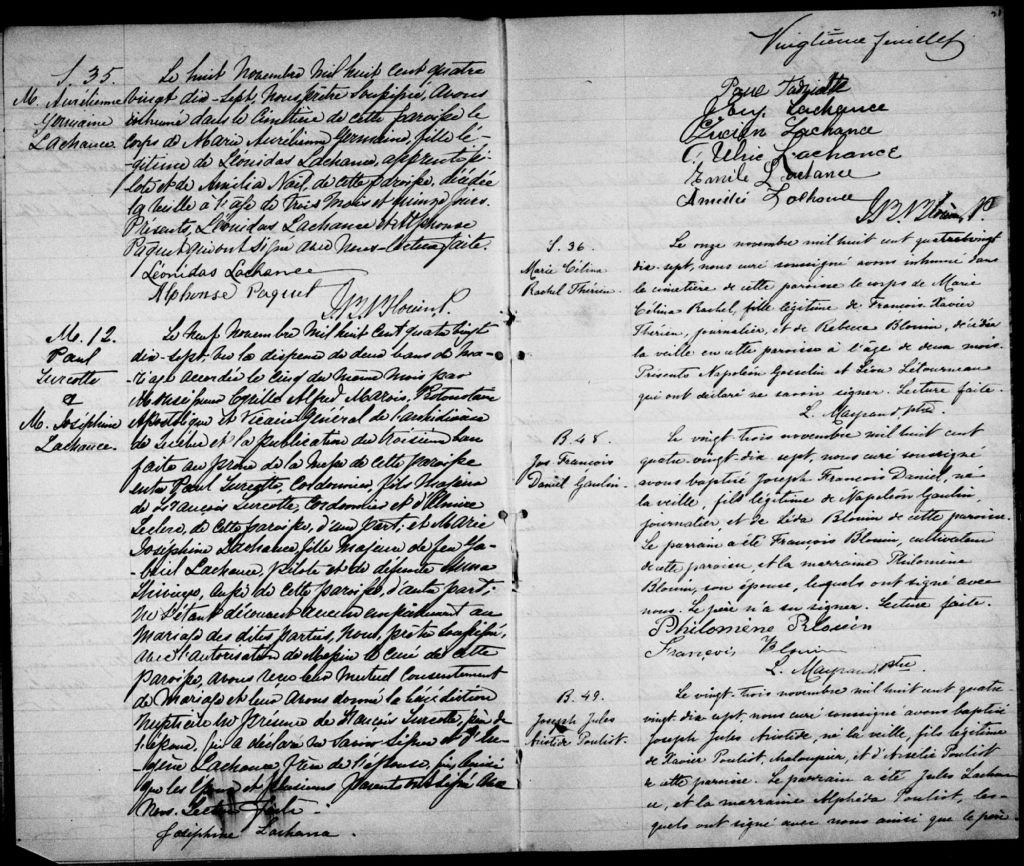 S. 35.
M. Aurélienne
Germaine
Lachance
Le huit Novembre Mil huit cent quatre
vingt dix-sept, Nous prêtre soussigné, avons
inhumé dans le Cimetière de cette paroisse le
corps de Marie Aurélienne Germaine, fille lé-
gitime de Léonidas Lachance, apprenti pi-
lote et de Amélia Noël, de cette paroisse, décédée
la veille à l'age de trois Mois et quinze jours.
Présents, Léonidas Lachance et Alphonse
Paquet qui ont signé avec Nous. Lecture faite.
Léonidas Lachance
Alphonse Paquet
M. 12.
Paul
Turcotte
&
M. Joséphine
Lachance.
Le Neuf Novembre Mil huit Cent quatre vingt
dix-sept, vu la dispense de deux bans de ma-
riage accordée le cinq du même mois par
Monseigneur Cyrille Alfred Marois, Protonotaire
Apostolique et Vicaire Général de l'archidiocèse
de Québec et la publication du troisième ban
faite au prône de la Messe de cette paroisse
entre Paul Turcotte, Cordonnier, fils Majeur
de François Turcotte, Cordonnier et d'
Leclerc, de cette paroisse, d'une part; et Marie
Joséphine Lachance, fille Majeure de feu Ga-
briel Lachance, Pilote et de défunte
de cette paroisse, d'autre part;
Ne s'étant découvert aucun empêchement au
Mariage des dites parties, Nous, prêtre soussigné,
avec l'autorisation de Messire le Curé de cette
paroisse, avons reçu leur Mutuel Consentement
de Mariage et leur avons donné la bénédiction
Nuptiale en présence de François Turcotte, père de
l'époux, qui a déclaré ne savoir signer et d'
Lachance, frère de l'épouse,
que les époux et plusieurs parents ont signé avec
Nous. Lecture faite.
Joséphine Lachance.
Vingtième feuillet
Paul Turcotte
Lachance
Lucien Lachance
Ulric Lachance
Emile Lachance
Amédée Lachance
S. 36.
Marie Célina
Rachel Thérien
Le onze novembre mil huit cent quatrevingt
dix-sept, nous curé soussigné avons inhumé dans
le cimetière de cette paroisse le corps de Marie
Célina Rachel, fille légitime de François Xavier
Thérien, journalier, et de Rebecca Blouin, décédée
la veille en cette paroisse à l'âge de deux mois.
Présents Napoléon Gosselin et Léon Létourneau
qui ont déclaré ne savoir signer. Lecture faite.
L. Mayrand ptre.
B. 48.
Jos François
Daniel Gaulin.
Le vingt trois novembre mil huit cent
quatre-vingt dix sept, nous curé soussigné
avons baptisé Joseph François Daniel, né
la veille, fils légitime de Napoléon Gaulin,
journalier, et de Lida Blouin de cette paroisse.
Le parrain a été François Blouin, cultivateur
de cette paroisse, et la marraine Philomène
Blouin, son épouse, lesquels ont signé avec
nous. Le père n'a su signer. Lecture faite.
Philomène Blouin
François Blouin
L. Mayrand Ptre
B. 49.
Joseph Jules
Aristide Pouliot.
Le vingt-trois novembre mil huit cent quatre-
vingt dix sept, nous curé soussigné avons baptisé
Joseph Jules Aristide, né la veille, fils légitime
de Xavier Pouliot, chaloupier, et d'Amélie Pouliot
de cette paroisse. Le parrain a été Jules Lachan
ce, et la marraine Alphéda Pouliot, les-
quels ont signé avec nous ainsi que le père